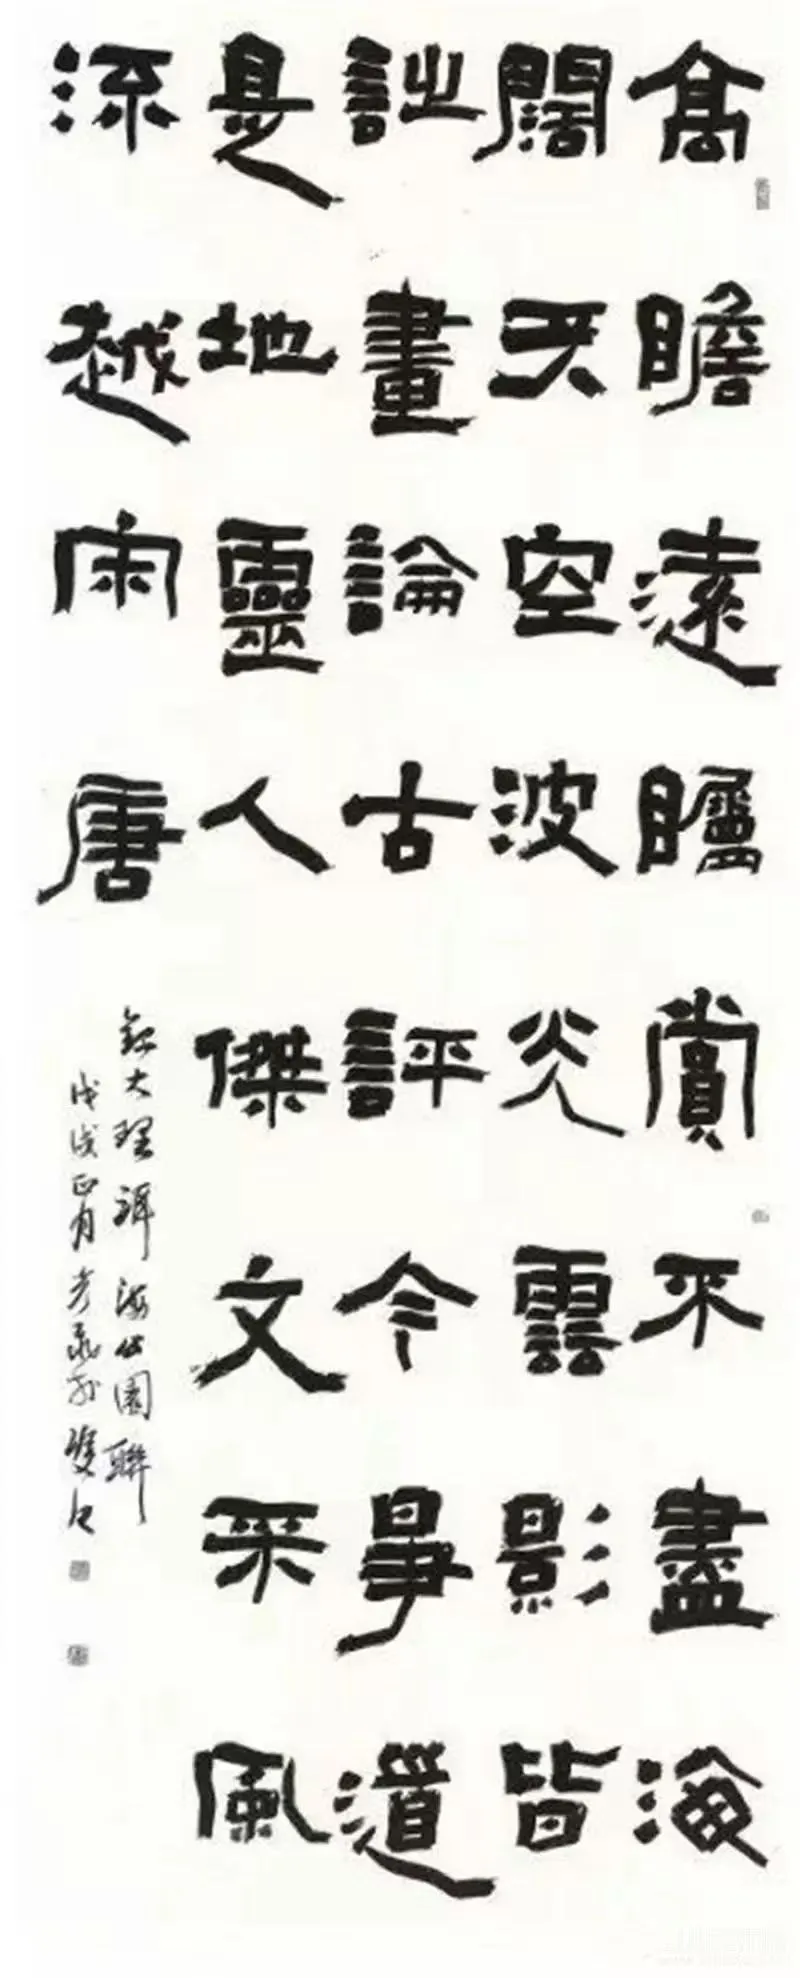 高瞻遠矚賞不盡海
闊天空波光雲影皆
詩畫論古評今爭道
是地靈人傑文采風
流越宋唐
錄大理洱海公園聯
戊戌正月